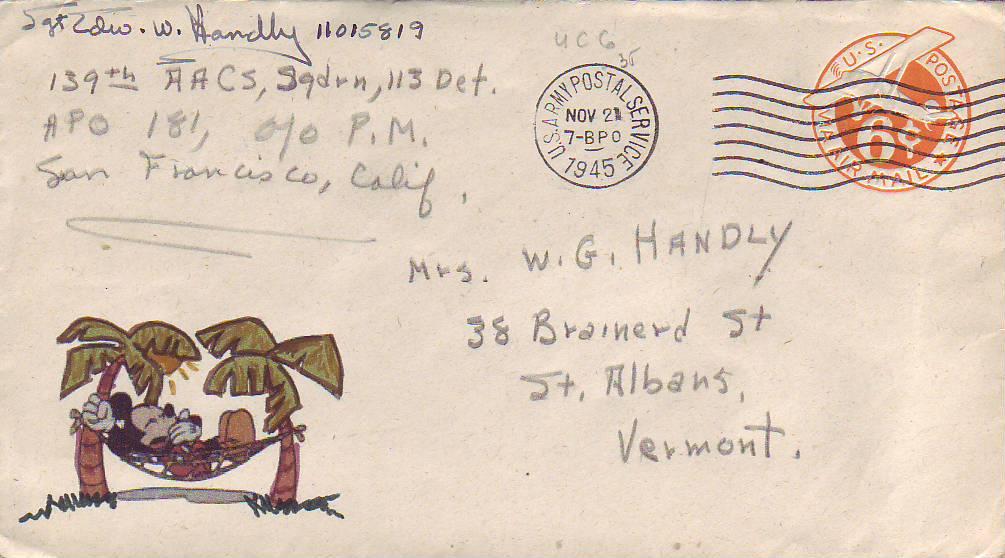 Sgt Edw. W. Handly 11015819
139th AACS, Sqdrn, 113 Det.
APO 181, c/o P.M.
San Francisco, Calif.
UCG
35
U.S. ARMY POSTAL SERVICE
NOV 21
7-BPO
1945
U.S. POSTAGE
6¢
VIA AIR MAIL
Mrs. W. G. HANDLY
38 Brainerd St
St. Albans,
Vermont.